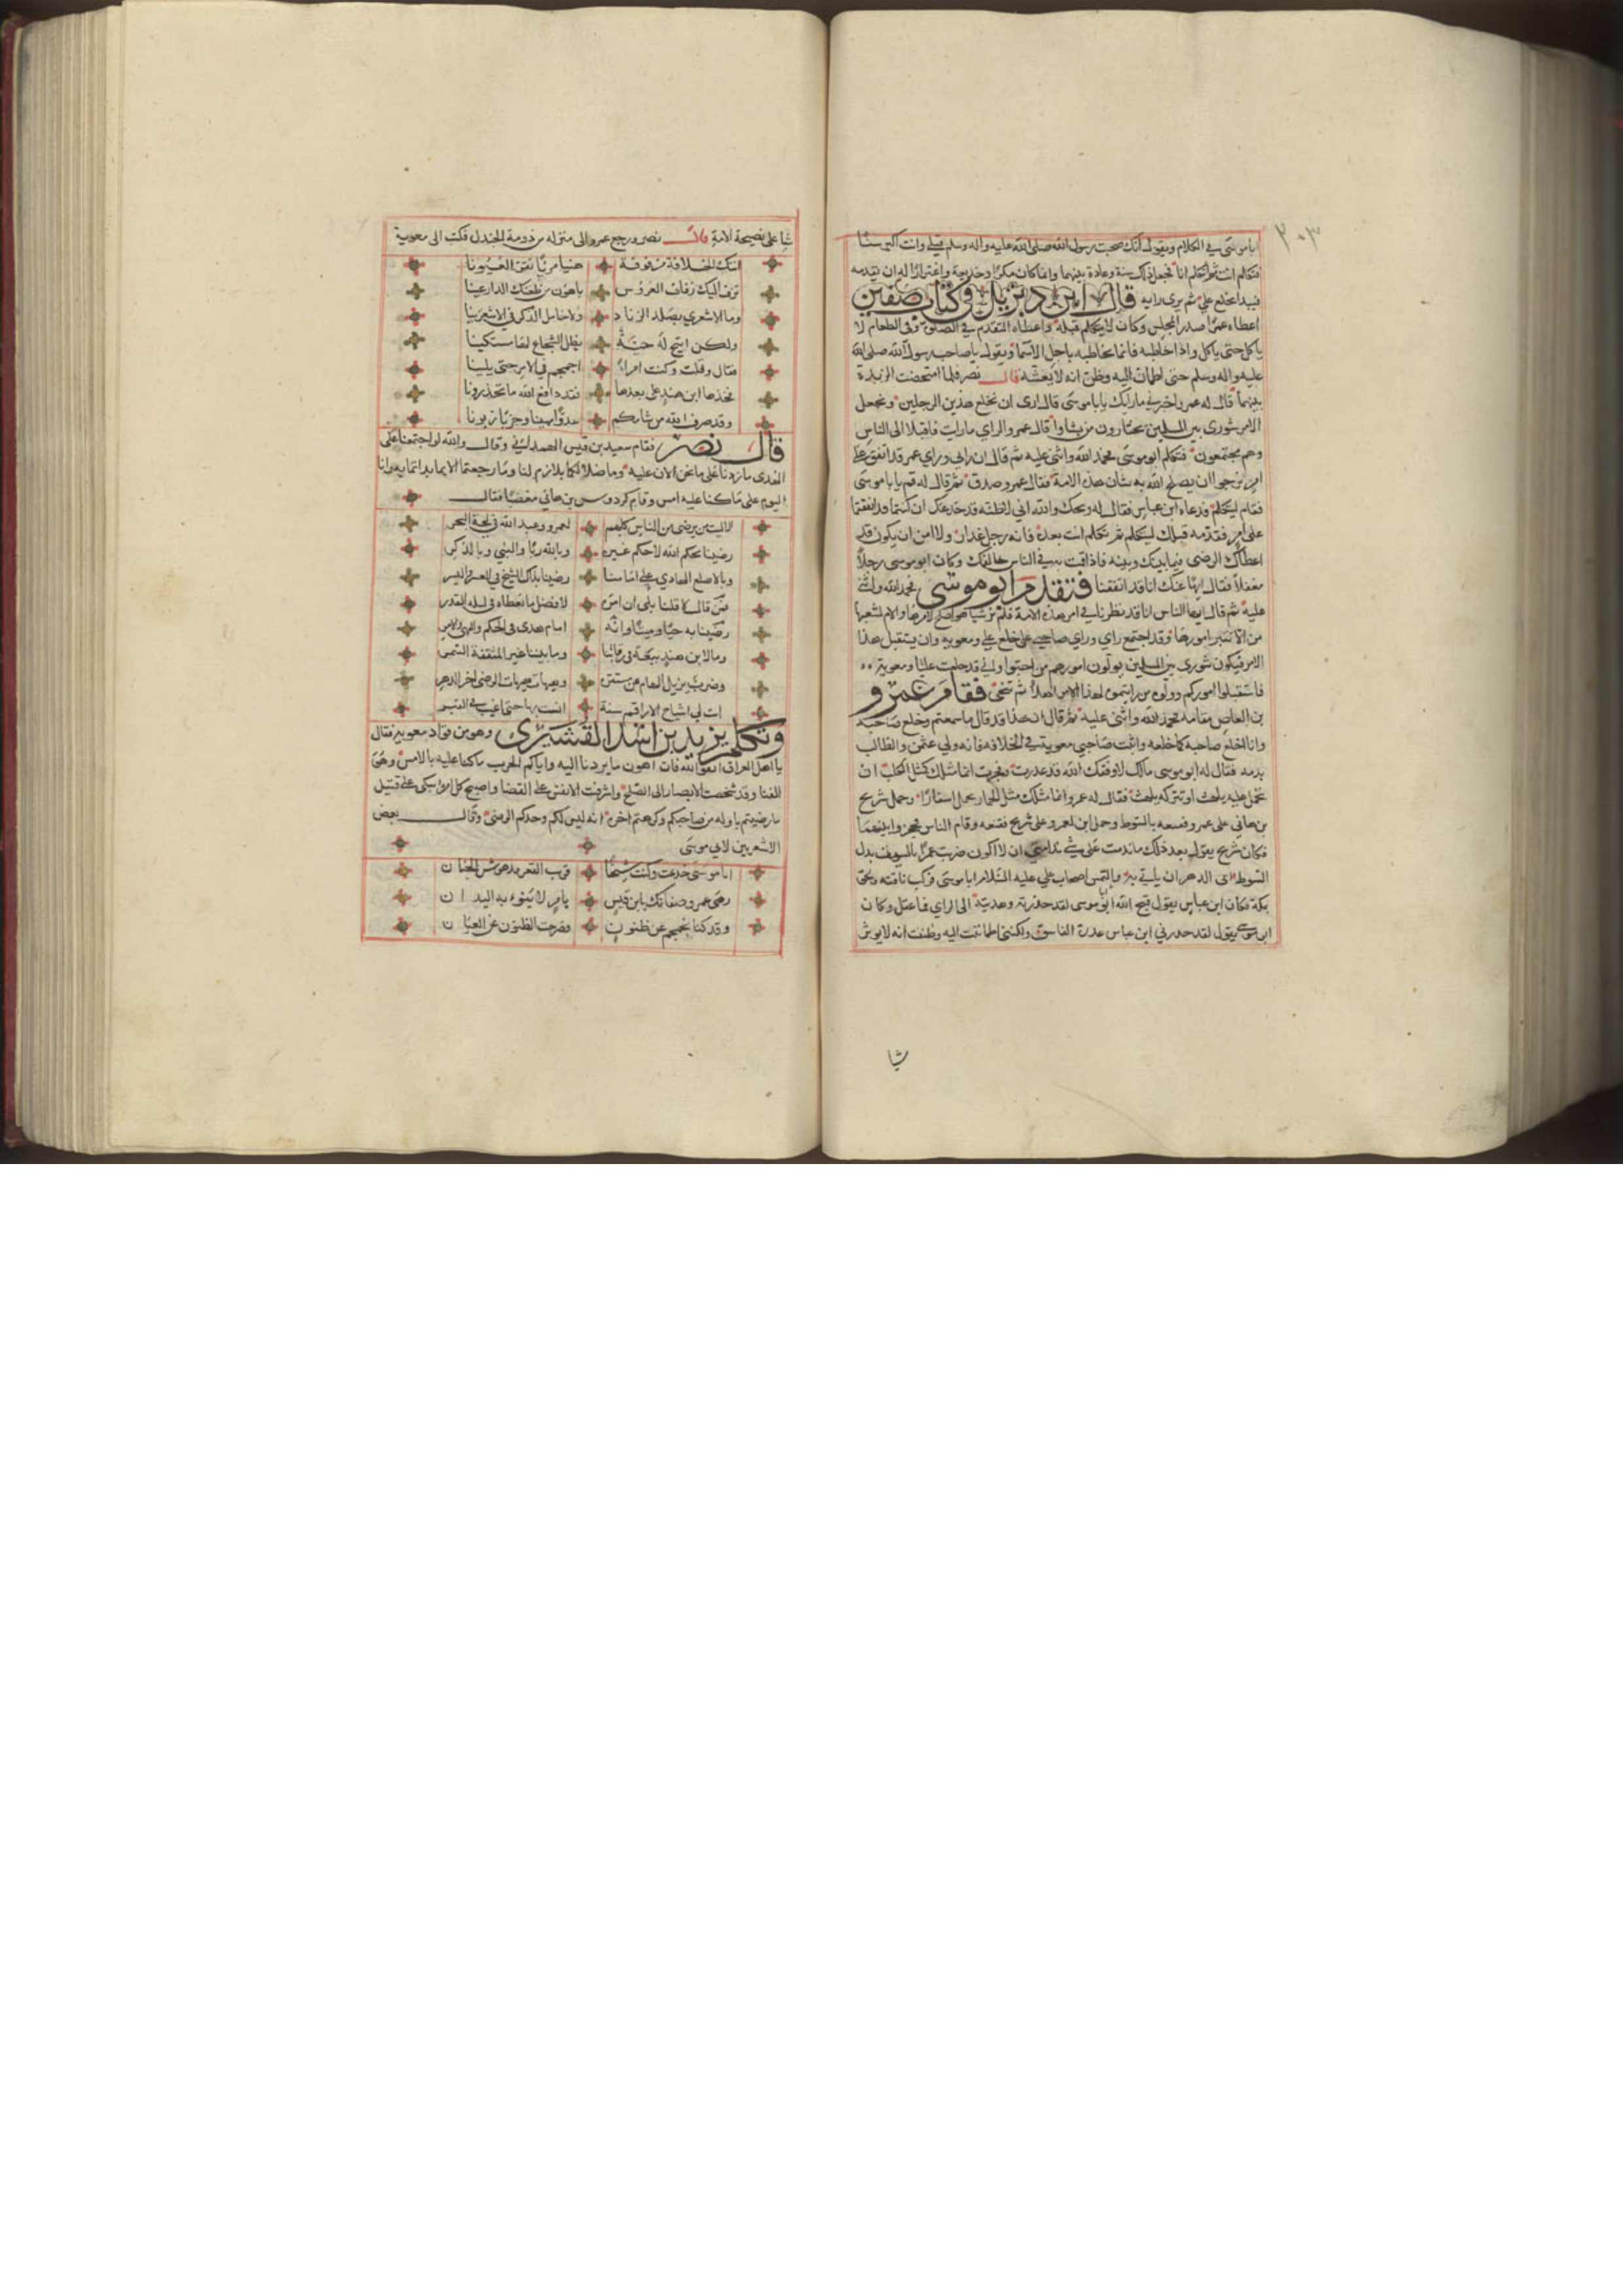 ٢٠٣
ابا موسى في الكلام ويقول انك صحبت رسول الله صلى الله عليه واله وسلم قبلي وانت اكبر سنا
فتكلم انت ثم اتكلم انا فجعل ذلك سنة وعادة بينهما وانما كان مكرا وخديعة واغترارا له ان يقدمه
فيبدا بخلع علي ثم يرى رايه قال ابن ديزيل في كتاب صفين
اعطاه عمرو صدر المجلس وكان لا يتكلم قبله واعطاه التقدم في الصلوة وفي الطعام لا
ياكل حتى ياكل واذا خاطبه فانما يخاطبه باجل الاسما ويقول يا صاحب رسول الله صلى الله
عليه واله وسلم حتى اطمان اليه وظن انه لا يغشه قال نصر فلما امتحضت الزبدة
بينهما قال له عمرو اخبرني ما رايك يابا موسى قال ارى ان نخلع هذين الرجلين ونجعل
الامر شورى بين المسلمين يختارون من يشاوا قال عمرو الراي ما رايت فاقبلا الى الناس
وهم مجتمعون فتكلم ابو موسى فحمد الله واثنى عليه ثم قال ان رايي وراي عمرو قد اتفق على
امر نرجو ان يصلح الله به شان هذه الامة فقال عمرو صدق ثم قال له قم يابا موسى
فقام ليتكلم فدعاه ابن عباس فقال له ويحك والله اني لاظنه قد خدعك ان كنتما قد اتفقتما
على امر فقدمه قبلك ليتكلم ثم تكلم انت بعده فانه رجل غدار ولا امن ان يكون قد
اعطاك الرضى فيما بينك وبينه فاذا قمت به في الناس خالفك وكان ابو موسى رجلا
مغفلا فقال ايها عنك انا قد اتفقنا فتقدم ابو موسى فحمد الله واثنى
عليه ثم قال ايها الناس انا قد نظرنا في امر هذه الامة فلم نر شيا هو اصلح لامرها والم لشعثها
من الا تتبر امورها وقد اجتمع رايي وراي صاحبي على خلع علي ومعوية وان يستقبل هذا
الامر فيكون شورى بين المسلمين يولون امورهم من احبوا واني قد خلعت عليا ومعوية
فاستقبلوا اموركم وولوا من رايتموه لهذا الامر اهلا ثم تنحى فقام عمرو
بن العاص مقامه فحمد الله واثنى عليه ثم قال ان هذا قد قال ما سمعتم وخلع صاحبه
وانا اخلع صاحبه كما خلعه واثبت صاحبي معوية في الخلافه فانه ولي عثمن والطالب
بدمه فقال له ابو موسى مالك لا وفقك الله قد غدرت وفجرت انما مثلك كمثل الكلب ان
تحمل عليه يلهث او تتركه يلهث فقال له عمرو انما مثلك مثل الحمار يحمل اسفارا وحمل شريح
بن هاني على عمرو فقنعه بالسوط وحمل ابن لعمرو على شريح فقنعه وقام الناس فحجزوا بينهما
فكان شريح يقول بعد ذلك ما ندمت على شي ندامتي ان لا اكون ضربت عمرا بالسيف بدل
السوط اتى الدهر ان ياتي به والتمس اصحاب علي عليه السلام ابا موسى فركب ناقته ولحق
بمكة فكان ابن عباس يقول قبح الله ابا موسى لقد حذرته وهديته الى الراي فما عقل وكان
ابو موسى يقول لقد حذرني ابن عباس غدرة الفاسق ولكنني اطماننت اليه وظننت انه لا يوثر
شيا
شيا على نصيحة الامة قال نصر ورجع عمرو الى منزله من دومة الجندل فكتب الى معوية
اتتك الخلافة مزفوفة هنيا مريا تقر العيونا
تزف اليك زفاف العروس باهون من طعنك الدارعينا
وما الاشعري بصلد الزناد ولا خامل الذكر في الاشعرينا
ولكن اتيح له حية يظل الشجاع لها مستكينا
فقال وقلت وكنت امرا اجهجه في الامر حتى يلينا
فخذها ابن هند على بعدها فقد دافع الله ما تحذرونا
وقد صرف الله من شامكم عدوا مهينا وحزبا زبونا
قال نصر فقام سعيد بن قيس الهمداني وقال والله لو اجتمعنا على
الهدى ما زدتنا على ما نحن الان عليه وما ضلالكما بلازم لنا وما رجعتما الا بما بداتما به وانا
اليوم على ما كنا عليه امس وقام كردوس بن هاني مغضبا فقال
الا ليت من يرضى من الناس كلهم لعمرو وعبد الله في لجة البحر
رضينا بحكم الله لا حكم غيره وبالله ربا والنبي وبالذكر
وبالاصلع الهادي علي امامنا رضينا بذاك الشيخ في العسر واليسر
فمن قال لا قلنا بلى ان امره لافضل ما نعطاه في ليلة القدر
رضينا به حيا وميتا وانه امام هدى في الحكم والنهي والامر
وما لابن هند بيعة في رقابنا وما بيننا غير المثقفة السمر
وضرب يزيل الهام عن مستقره وهيهات هيهات الرضى اخر الدهر
ابت لي اشياخ الاراقم سنة اسب بها حتى اغيب في القبر
وتكلم يزيد بن اسد القشيري وهو من قواد معوية فقال
يا اهل العراق اتقوا الله فان اهون ما يردنا اليه واياكم الحرب ما كنا عليه بالامس وهي
الفنا وقد شخصت الابصار الى الصلح واشرفت الانفس على الفنا واصبح كل امرئ يبكي على قتيل
ما رضيتم باول من صاحبكم وكرهتم اخره انه ليس لكم وحدكم الرضى وقال بعض
الاشعريين لابي موسى
ابا موسى خدعت وكنت شيخا قريب القعر مدهوش الجنان
رمى عمرو صفاتك يا ابن قيس بامر لا تنوء به اليدان
وقد كنا نجمجم عن ظنون فصرحت الظنون عن العيان